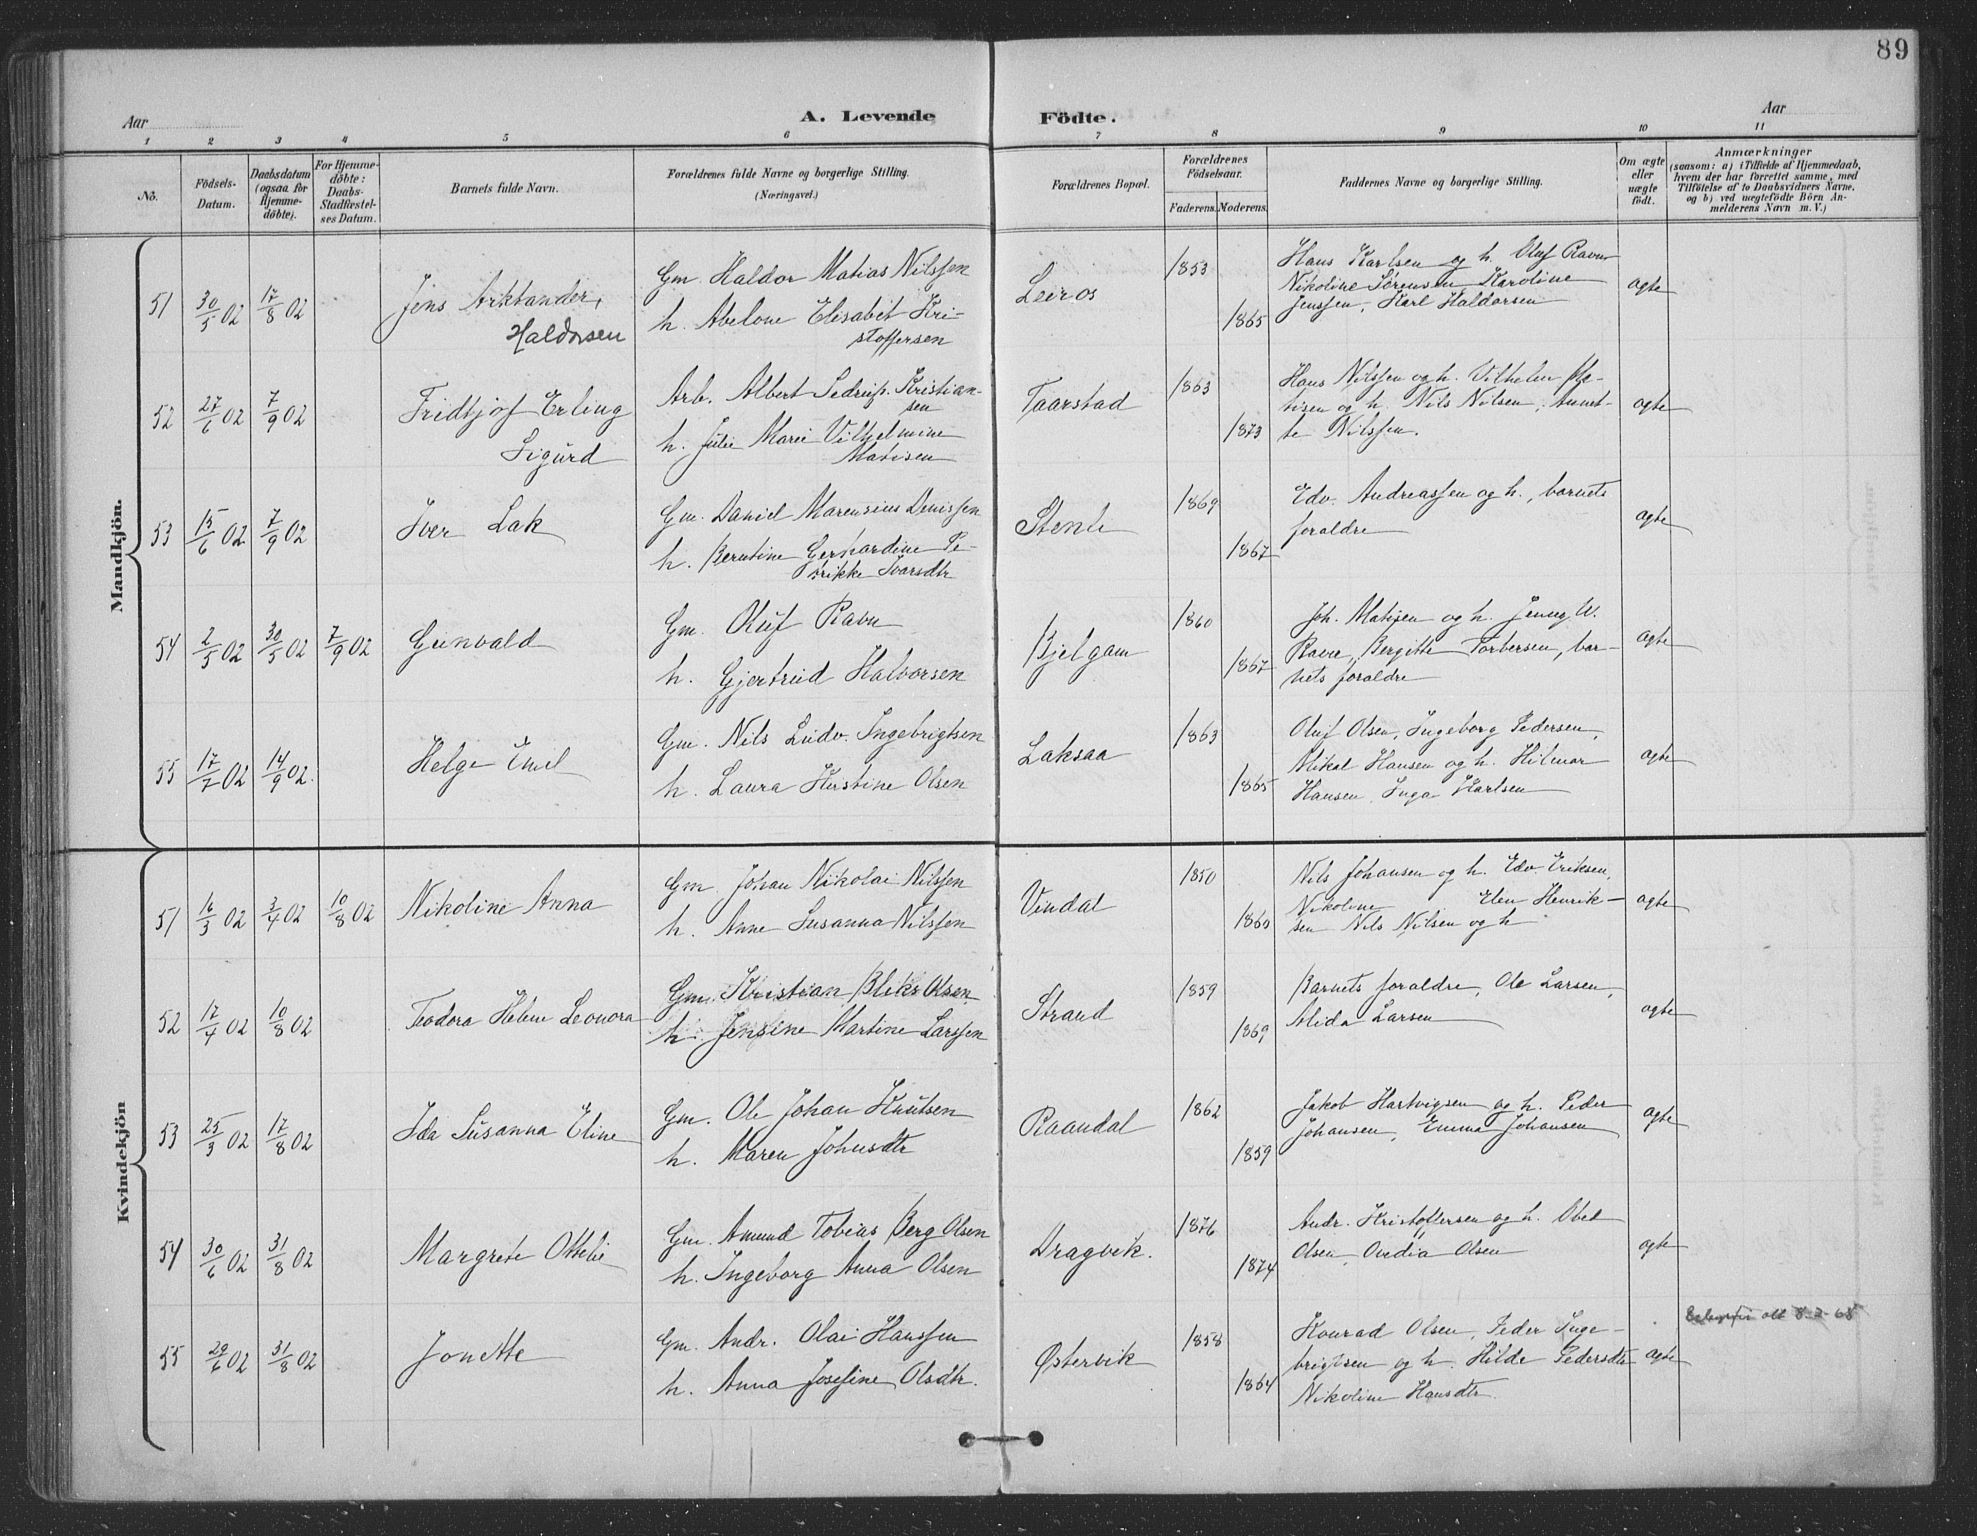 89
Aar
A. Levende Födte.
Aar
1 2 3 4 5 6 7 8 9 10 11
No.
Födsels-Datum.
Daabsdatum (ogsaa for Hjemmedöbte).
For Hjemmedøbte: Daabs-Stadfæstelses Datum.
Barnets fulde Navn.
Forældrenes fulde Navne og borgerlige Stilling. (Næringsvei.)
Forældrenes Bopæl.
Forældrenes Födselsaar.
Faderens. Moderens.
Faddernes Navne og borgerlige Stilling.
Om ægte eller uægte födt.
Anmærkninger
(saasom: a) i Tilfælde af Hjemmedaab, hvem der har forrettet samme, med Tilföielse af to Daabsvidners Navne, og b) ved uægtefödte Börn Anmelderens Navn m. V.)
Mandkjön.
51 30/5 02 17/8 02 Jens Arktander, Haldorsen
Gm Haldor Matias Nilssen
h. Abelone Elisabet Kri-
stoffersen
Leiros 1853 1865
Hans Karlsen og h. Oluf Ravn
Nikoline Sörensen, Karoline
Jenssen, Karl Haldorsen
ægte
52 27/6 02 7/9 02 Fridtjof Erling
Sigurd
Arb. Albert Sedrup. Kristian-
sen
h. Julie Marie Vilhelmine
Matisen
Taarstad 1863 1873
Hans Nilssen og h. Vilhelm
og h. Nils Nilsen, Annet-
te Nilssen.
ægte
53 15/6 02 7/9 02 Iver Lak
Gm. Daniel Marensius Denissen
h. Berntine Gerhardine Pe-
trikke Ivarsdtr
Stenli 1869 1867
Edv. Andreassen og h., barnets
foraldre
ægte
54 2/5 02 30/5 02 7/9 02 Gunvald
Gm. Oluf Ravn
h. Gjertrud Halvorsen
Bjelgam 1860 1867
Joh. Matisen og h. Jenny W.
Ravn, Bergitte Torbersen, bar-
nets foraldre
ægte
55 17/7 02 14/9 02. Helge Emil
Gm. Nils Ludv. Ingebrigtsen
h. Laura Kristine Olsen
Laksaa 1863 1865
Oluf Olsen, Ingeborg Pedersen,
Mikal Hansen og h. Hilmar
Hansen, Inga Karlsen
ægte
Kvindekjön
51 16/3 02 3/4 02 10/8 02 Nikoline Anna
Gm. Johan Nikolai Nilssen
h. Anne Susanna Nilssen
Vindal 1850 1860
Nils Johansen og h. Edv. Eriksen,
Nikoline Elen Henrik-
sen Nils Nilsen og h
ægte
52 17/4 02 10/8 02 Teodora Helene Leonora
Gm. Kristian Blikr Olsen
h. Jensine Martine Larssen
Strand 1859 1869
Barnets foraldre, Ole Larsen,
Alida Larsen
ægte
53 25/3 02 17/8 02 Ida Susanna Eline
Gm. Ole Johan Knutsen
h. Maren Johnsdtr
Raandal 1862 1859
Jakob Hartvigsen og h. Peder
Johansen, Emma Johansen
ægte
54 30/6 02 31/8 02 Margrete Ottelie
Gm. Amund Tobias Berg Olsen
h. Ingeborg Anna Olsen
Dragvik. 1876 1874
Andr. Kristoffersen og h. Obed
Olsen, Ovidia Olsen
ægte
55 29/6 02 31/8 02 Jonette
Gm. Andr. Olai Hanssen
h. Anna Josefine Olsdtr.
Østervik 1858 1864
Konrad Olsen, Peder Inge-
brigtsen og h. Hilde Pedersdtr
Nikoline Hansdtr.
ægte
att 8-2-68